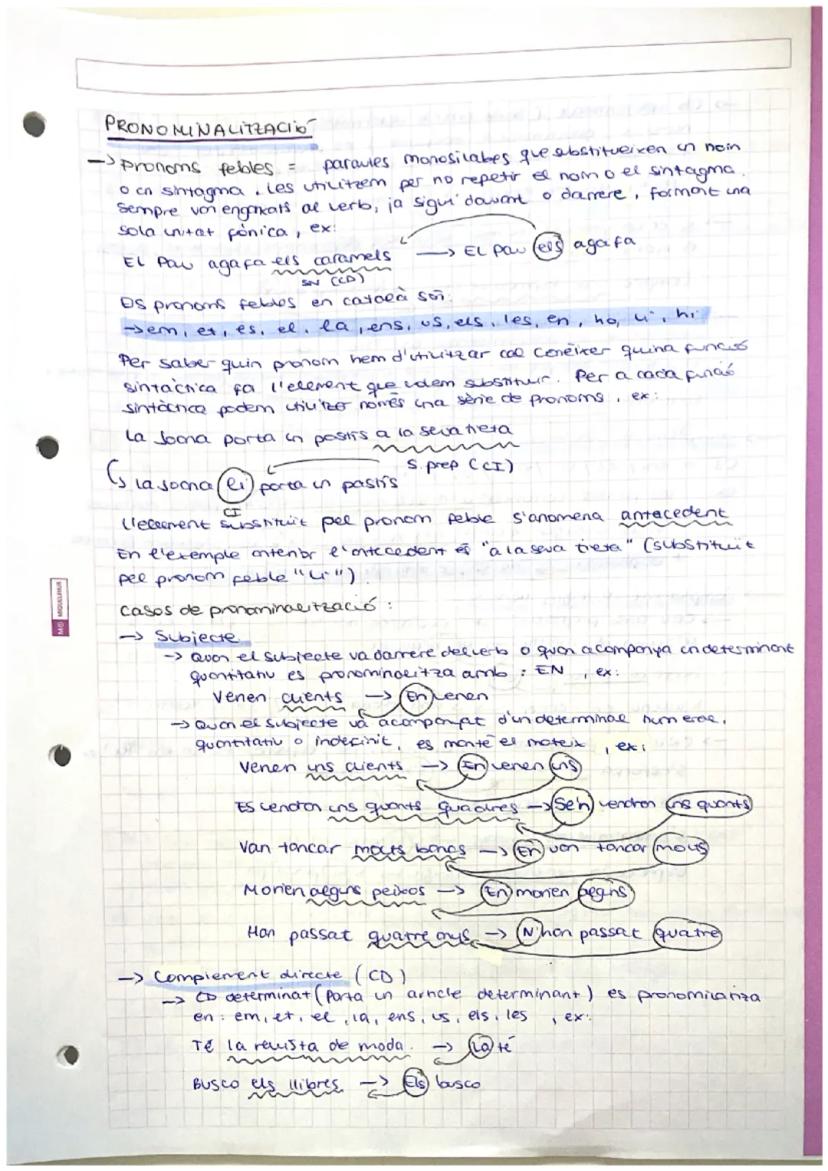 PRONOMINALITZACIÓ
-> pronoms febles = paraules monosilabes que substitueixen un nom
o un sintagma. Les utilitzem per no repetir el nom o el sintagma.
Sempre van enganxats al verb, ja sigui davant o darrere, formant una
sola unitat fònica, ex:
El Pau agafa els caramels -> El Pau els agafa
SN (CD)
Els pronoms febles en català són:
-> em, et, es, el, la, ens, us, els, les, en, ho, li, hi
Per saber quin pronom hem d'utilitzar cal conèixer quina funció
sintàctica fa l'element que volem substituir. Per a cada funció
sintàctica podem utilitzar només una sèrie de pronoms, ex:
La Joana porta un pastís a la seva tieta
S. prep (CI)
La Joana li porta un pastís
CI
L'element substituït pel pronom feble s'anomena antecedent
En l'exemple anterior l'antecedent és "a la seva tieta" (substituït
pel pronom feble "li")
Casos de pronominalització:
-> Subjecte
-> Quan el subjecte va darrere del verb o quan acompanya un determinant
quantitatiu es pronominalitza amb: EN, ex:
Venen clients -> En venen
-> Quan el subjecte va acompanyat d'un determinal numeral,
quantitatiu o indefinit, es manté el mateix, ex:
Venen uns clients -> En venen uns
Es vendran uns quants quadres -> Se'n vendran uns quants
Van tancar molts bancs -> En van tancar molts
Morien alguns peixos -> En morien alguns
Han passat quatre anys -> N'han passat quatre
-> Complement directe (CD)
-> CD determinat (Porta un article determinant) es pronominalitza
en: em, et, el, la, ens, us, els, les, ex:
Té la revista de moda. -> La té
Busco els llibres -> Els busco
MIQUELRIUS